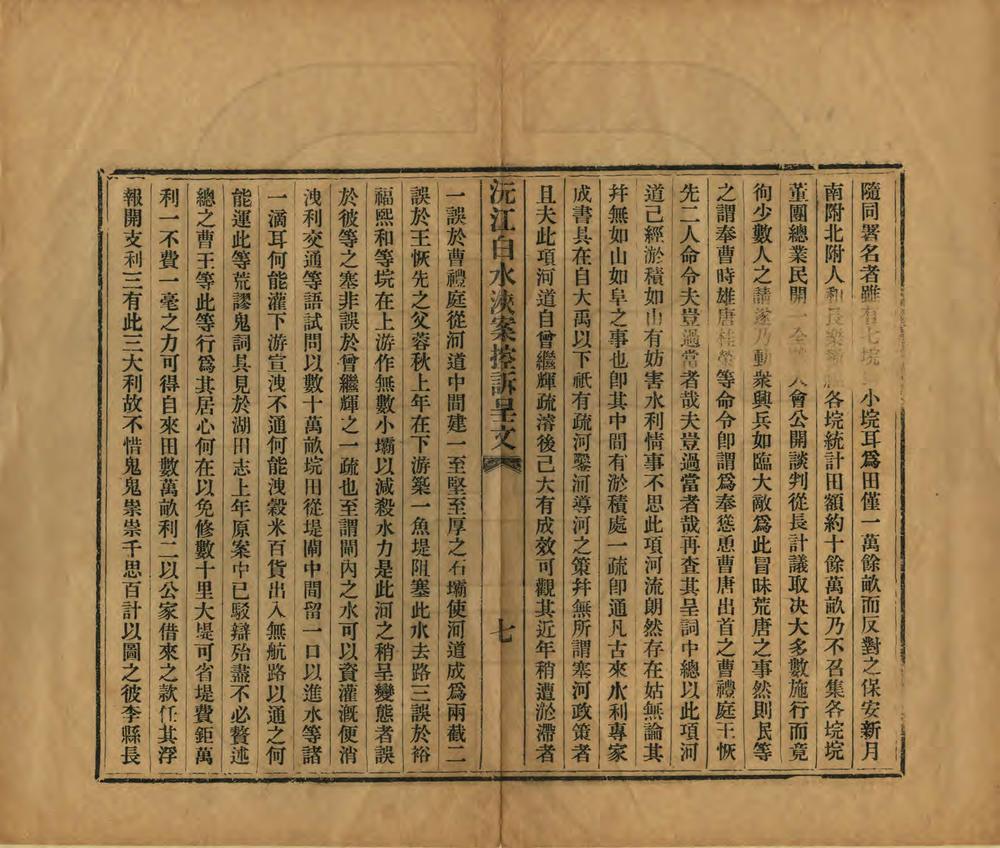 隨同署名者雖有七垸小垸耳爲田僅一萬餘畝而反對之保安新月
南附北附人和長樂各垸統計田額約十餘萬畝乃不召集各垸垸
董團總業民開一全大會公開談判從長計議取决大多數施行而竟
徇少數人之請遂乃動衆興兵如臨大敵爲此冒昧荒唐之事然則民等
之謂奉曹時雄唐桂棻等命令卽謂爲奉慫恿曹唐出首之曹禮庭王恢
先二人命令夫豈過當者哉夫豈過當者哉再查其呈詞中總以此項河
道已經淤積如山有妨害水利情事不思此項河流朗然存在姑無論其
幷無如山如阜之事也卽其中間有淤積處一疏卽通凡古來水利專家
成書具在自大禹以下祇有疏河鑿河導河之策幷無所謂塞河政策者
且夫此項河道自曾繼輝疏濬後已大有成效可觀其近年稍遭淤滯者
沅江白水浹案控訴呈文 七
一誤於曹禮庭從河道中間建一至堅至厚之石壩使河道成爲兩截二
誤於王恢先之父蓉秋上年在下游築一魚堤阻塞此水去路三誤於裕
福熙和等垸在上游作無數小壩以減殺水力是此河之稍呈變態者誤
於彼等之塞非誤於曾繼輝之一疏也至謂閘內之水可以資灌漑便消
洩利交通等語試問以數十萬畝垸田從堤閘中間留一口以進水等諸
一滴耳何能灌下游宣洩不通何能洩穀米百貨出入無航路以通之何
能運此等荒謬鬼詞具見於湖田志上年原案中已駁辯殆盡不必贅述
總之曹王等此等行爲其居心何在以免修數十里大堤可省堤費鉅萬
利一不費一毫之力可得自來田數萬畝利二以公家借來之款任其浮
報開支利三有此三大利故不惜鬼鬼祟祟千思百計以圖之彼李縣長